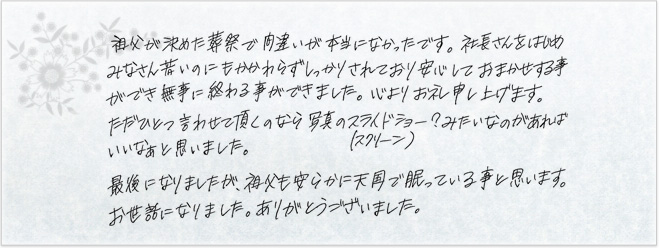 祖父が決めた葬祭で間違いが本当になかったです。社長さんをはじめ
みなさん若いのにもかかわらずしっかりされており安心しておまかせする事
ができ無事に終わる事ができました。心よりお礼申し上げます。
ただひとつ言わせて頂くのなら写真のスライドショー？みたいなのがあれば
(スクリーン)
いいなぁと思いました。
最後になりましたが、祖父も安らかに天国で眠っている事と思います。
お世話になりました。ありがとうございました。